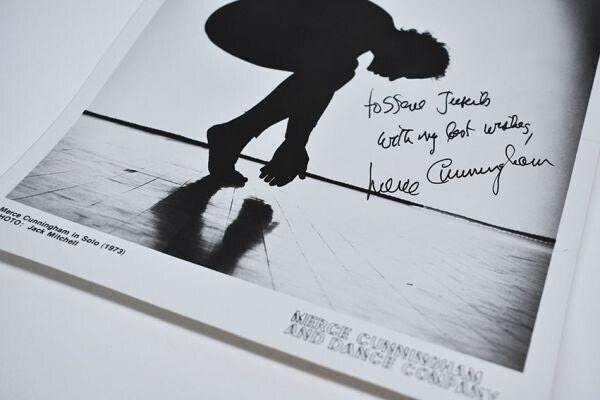 with my best wishes,
Merce Cunningham
Merce Cunningham in Solo (1973)
PHOTO: Jack Mitchell
MERCE CUNNINGHAM
AND DANCE COMPANY